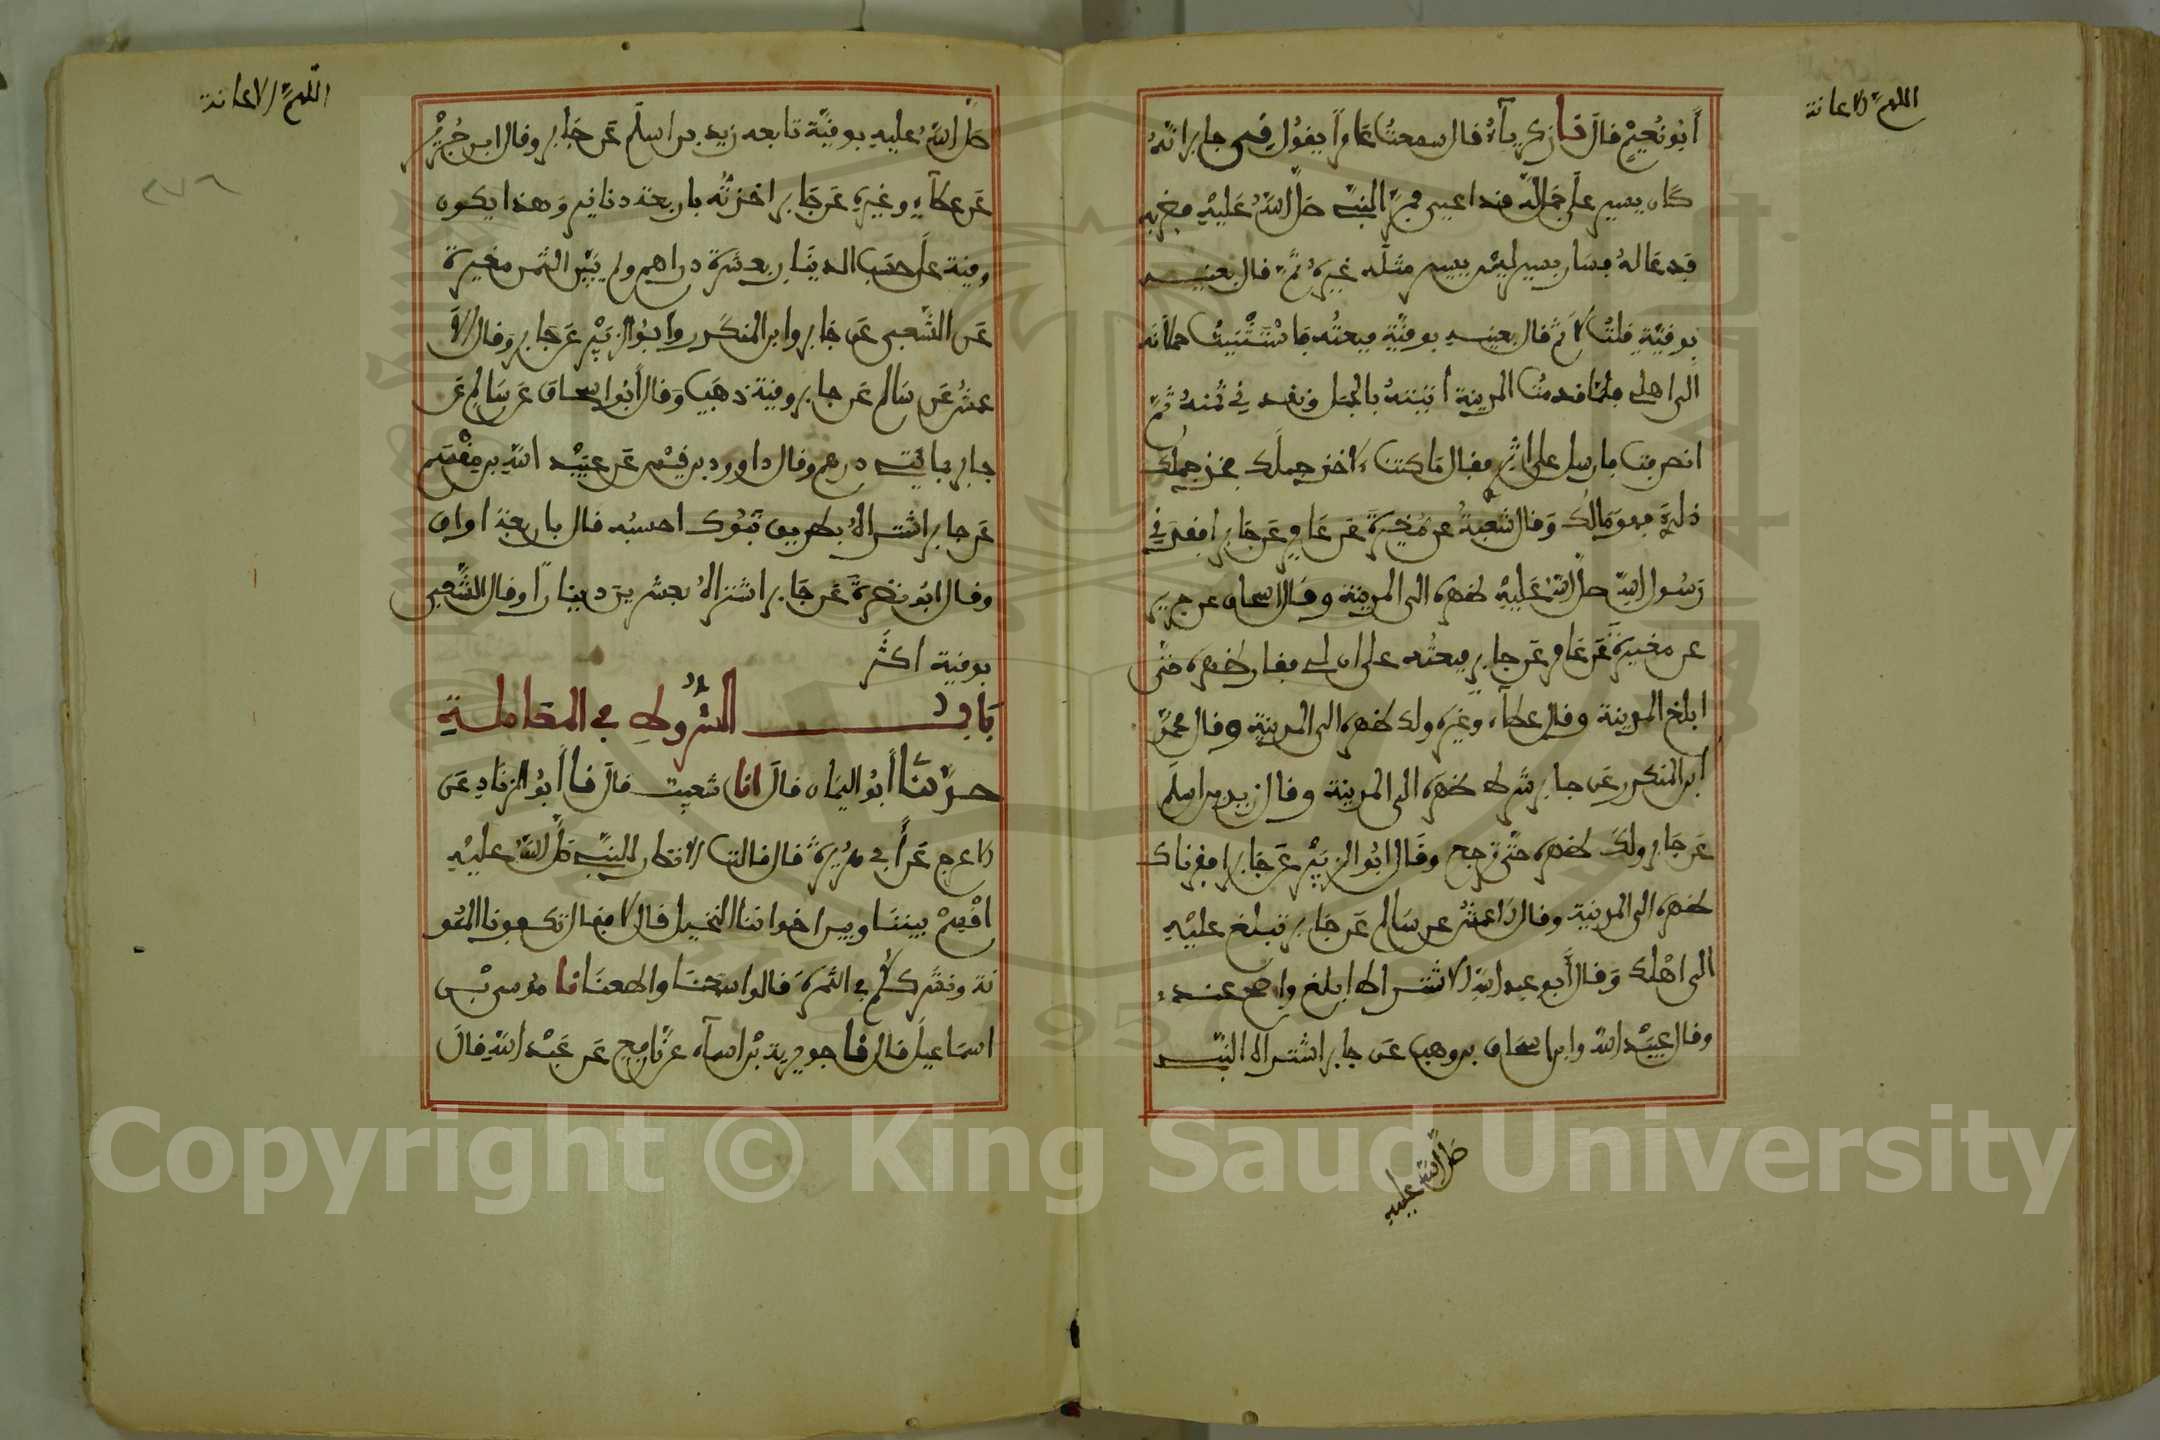 اللهم الاعانة
أبو نعيم قال نا زكرياء قال سمعت عامرا يقول في جابر انه
كان يسير على جمل له قد اعيى فمر النبي صلى الله عليه فضربه
فدعا له فسار بسير ليس يسير مثله غيره ثم قال بعنيه
بوقية قلت لا ثم قال بعنيه بوقية فبعته فاستثنيت حملانه
الى اهلي فلما قدمت المدينة اتيته بالجمل ونقد في ثمنه ثم
انصرفت فارسل على اثري فقال ما كنت لاخذ جملك فخذ جملك
ذلك فهو مالك وقال شعبة عن مغيرة عن عامر عن جابر افقرني
رسول الله صلى الله عليه ظهره الى المدينة وقال اسحاق عن جرير
عن مغيرة عن عامر عن جابر فبعته على ان لي فقار ظهره حتى
ابلغ المدينة وقال عطاء وغيره ولك ظهره الى المدينة وقال محمد
ابن المنكدر عن جابر شرط ظهره الى المدينة وقال زيد بن اسلم
عن جابر ولك ظهره حتى ترجع وقال ابو الزبير عن جابر افقرناك
ظهره الى المدينة وقال الاعمش عن سالم عن جابر تبلغ عليه
الى اهلك وقال أبو عبد الله الاشتراط ابلغ واصح عندي
وقال عبيد الله وابن اسحاق بن وهب عن جابر اشتراه النبي
صلى الله عليه
اللهم الاعانة
صلى الله عليه بوقية تابعه زيد بن اسلم عن جابر وقال ابن جريج
٢٧٦
عن عطاء وغيره عن جابر اخذته باربعة دنانير وهذا يكون
وقية على حساب الدينار بعشرة دراهم ولم يبين الثمن مغيرة
عن الشعبي عن جابر وابن المنكدر وابو الزبير عن جابر وقال الا
عمش عن سالم عن جابر وقية ذهب وقال أبو اسحاق عن سالم عن
جابر بمائتي درهم وقال داوود بن قيس عن عبيد الله بن مقسم
عن جابر اشتراه بطريق تبوك احسبه قال باربعة اواق
وقال ابو نضرة عن جابر اشتراه بعشرين دينارا وقال الشعبي
بوقية اكثر
باب الشروط في المعاملة
حدثنا أبو اليمان قال انا شعيب قال نا أبو الزناد عن
الاعرج عن أبي هريرة قال قالت الانصار للنبي صلى الله عليه
اقسم بيننا وبين اخواننا النخيل قال لا فقال تكفونا المئو
نة ونشرككم في الثمرة قالوا سمعنا واطعنا نا موسى بن
اسماعيل قال نا جويرية بن اسماء عن نافع عن عبد الله قال
Copyright © King Saud University
1957